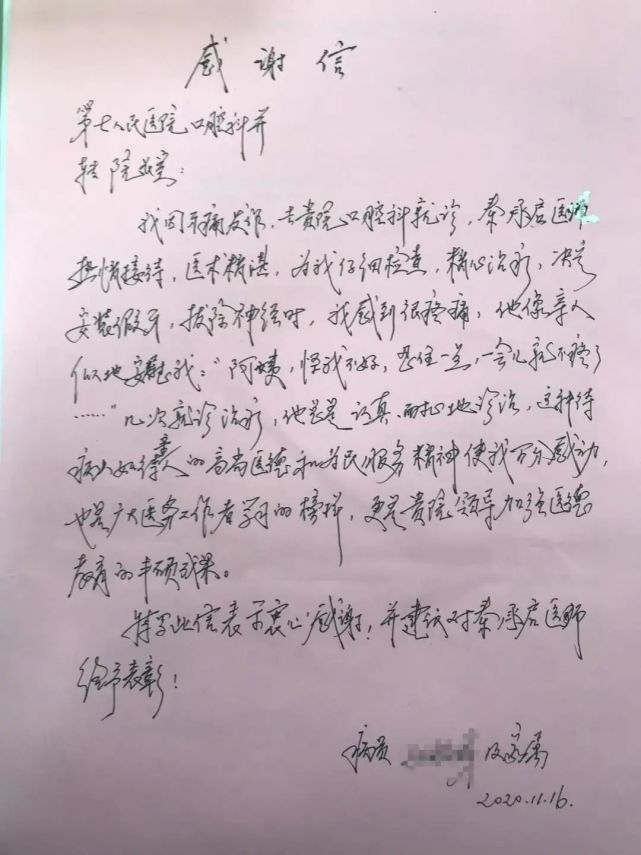 感谢信
第七人民医院口腔科并
转院领导:
我因牙痛发作,去贵院口腔科就诊,秦承启医师
热情接待,医术精湛,为我仔细检查,精心治疗,决定
安装假牙,拔除神经时,我感到很疼痛,他像亲人
似地安慰我:"阿姨,怪我不好,忍住一点,一会儿就不疼了
……"几次就诊治疗,他总是认真、耐心地诊治,这种待
病人如待亲人的高尚医德和为民服务精神使我万分感动,
也是广大医务工作者学习的榜样,更是贵院领导加强医德
教育的丰硕成果。
特写此信表示衷心感谢!并建议对秦承启医师
给予表彰!
病员 及家属
2020.11.16.